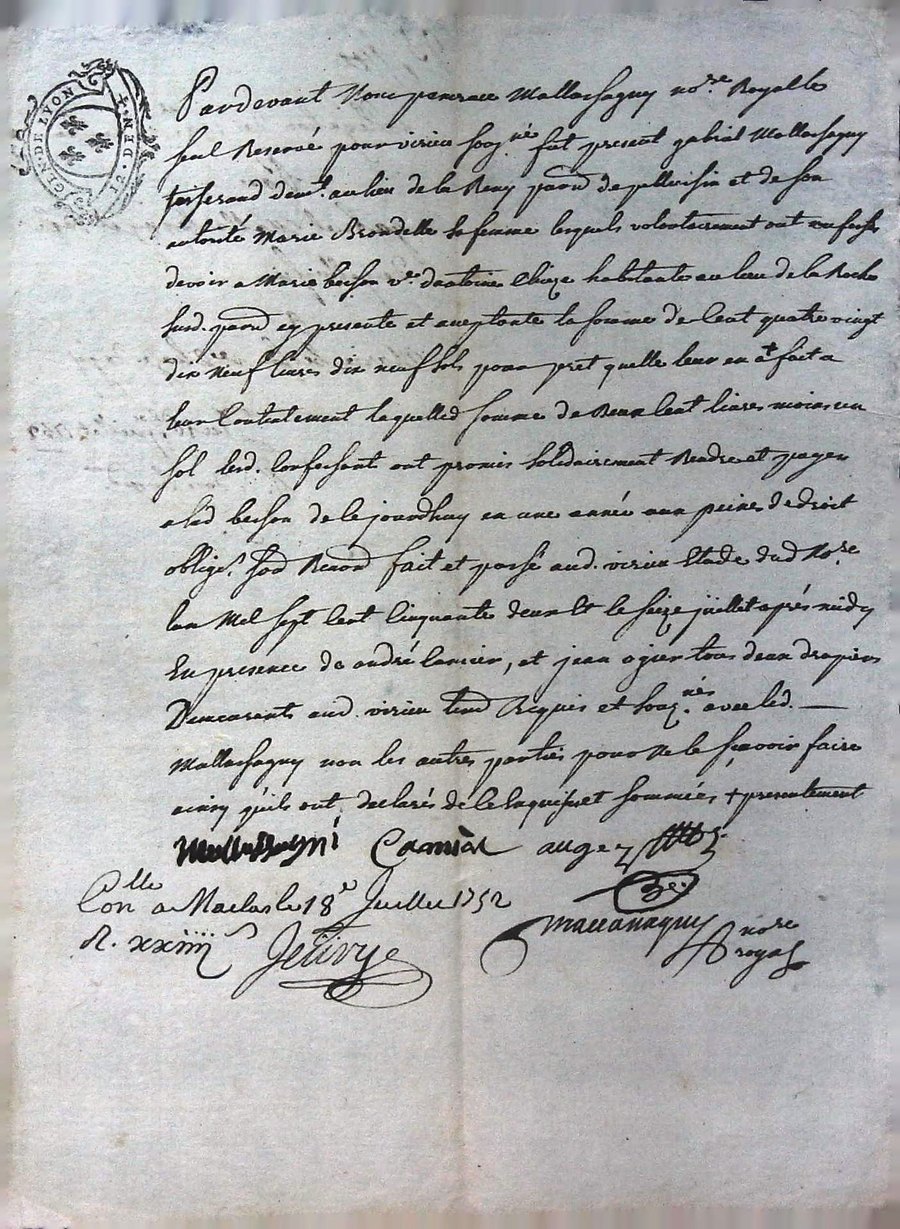 GEN. DE LYON 12. DEN.rs
Pardevant Nous pancrace Mallassagny no.re Royalle
seul Reservé pour virieu sousg.né fut present gabriel Mallassagny
tisserand dem.t au lieu de la Remy parr. de pellussin et de son
autorité Marie Brondelle sa femme lesquels volontairement ont confessé
devoir a Marie besson v.e dantoine Chize habitante au lieu de la Roche
susd. parr. cy presente et acceptante la somme de Cent quatre vingt
dix Neuf livres dix neuf sols pour pret quelle leur en a + fait a
leur Contentement laquelled somme de Deux Cent livres moins un
sol lesd. Confessants ont promis solidairement Rendre et payer
a lad besson de ce jourdhuy en une année aux peines de droit
oblige.t soub Renon fait et passé aud. virieu Etude dud No.re
lan Mil sept Cent Cinquante deux Et le seize juillet après midy
En presence de andré Camier, et jean ogier tous deux drapiers
Demeurants aud. virieu temd Requis et sousg.nés avec led.
Mallassagny non les autres parties pour ne le sçavoir faire
ainsy quils ont declarés de ce Enquis et sommées + presentement
Mallassagni Camier augez
Con.lle a Maclas le 18e Juillet 1752
R. xxiiii s
Mallassagny nore
royal